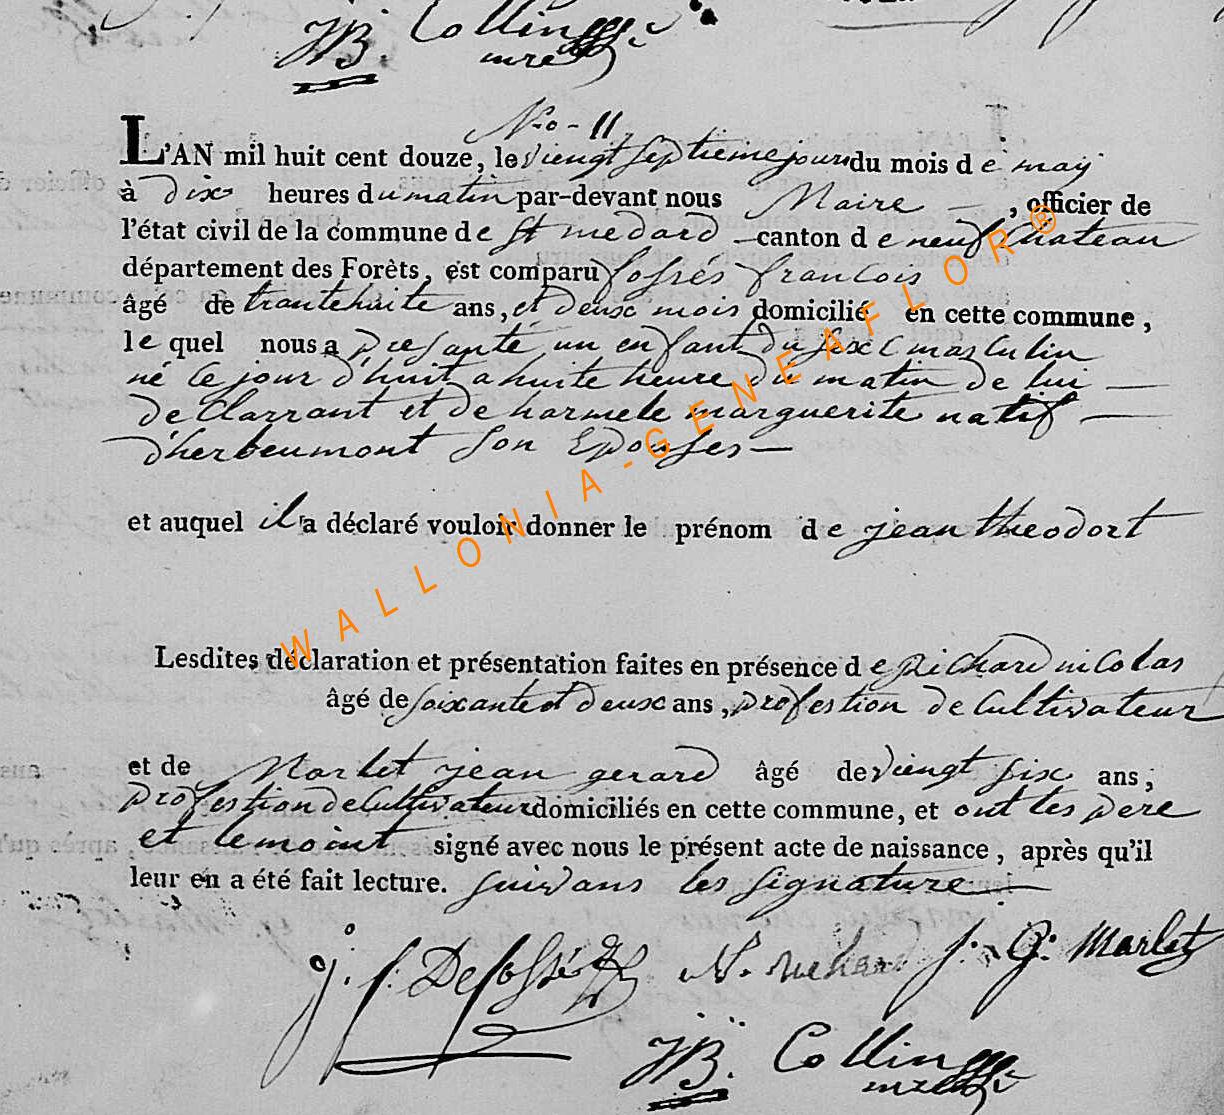 JB. Colling
mre
No - 11
L'AN mil huit cent douze, le viengt septieme jour du mois de may
à dix heures du matin par-devant nous Maire — , officier de
l'état civil de la commune de St medard — canton de neufchateau
département des Forêts, est comparu fossés francois
âgé de trantehuite ans, et deux mois domicilié en cette commune,
le quel nous a presanté un enfant du sexe masculin
né le jour d'huit a huite heure du matin de lui —
declarrant et de harmele marguerite natif —
d'herbeumont son Epouses —
et auquel il a déclaré vouloir donner le prénom de jean theodort
Lesdites déclaration et présentation faites en présence de richard nicolas
âgé de soixante et deux ans, profestion de Cultivateur
et de Marlet jean gerard âgé de viengt six ans,
profestion de Cultivateur domiciliés en cette commune, et ont les pere
et temoint signé avec nous le présent acte de naissance, après qu'il
leur en a été fait lecture. suivans les signature —
j. f. Defossé N. richard J. G. Marlet
JB. Colling
mre
WALLONIA-GENEAFLOR®